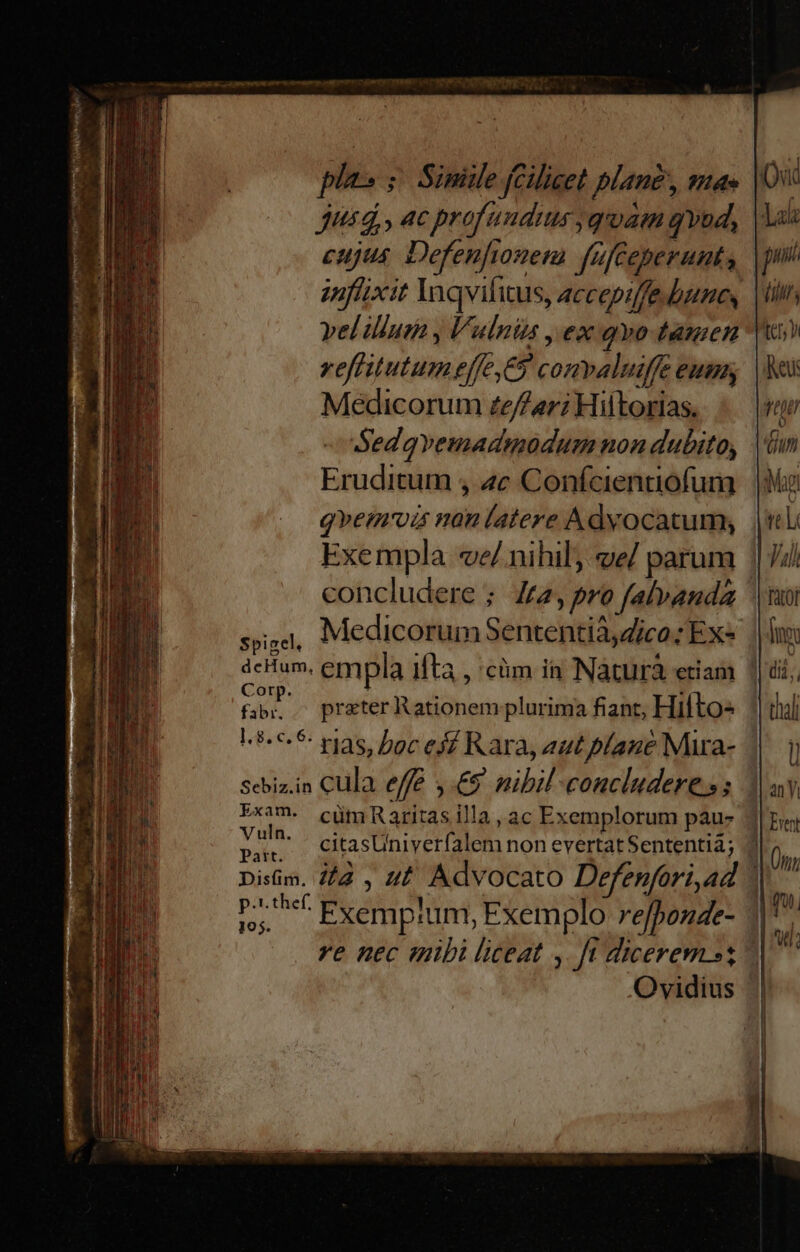 plas ; Simile ſcilicet planè, ma-
jusq́, ac profundius, qvàm qvod,
cujus Defenſionem ſuſceperunt,
inflixit Inqviſitus, accepiſſe hunc,
vel illum, Vulnus, ex qvo tamen
reſtitutum eſſe, & convaluiſſe eum,
Medicorum teſtari Hiſtorias.
Sed qvemadmodum non dubito,
Eruditum, ac Conſcientioſum
qvemvis non latere Advocatum,
Exempla vel nihil, vel parum
concludere ; Ita, pro ſalvandâ
Medicorum Sententiâ, dico: Ex-
empla iſta, cùm in Naturâ etiam
præter Rationem plurima fiant, Hiſto-
rias, hoc eſt Rara, aut planè Mira-
cula eſſe, & nihil concludere ;
cùm Raritas illa, ac Exemplorum pau-
citas Univerſalem non evertat Sententiã ;
ità, ut Advocato Defenſori, ad
Exemplum, Exemplo reſponde-
re nec mihi liceat, ſi dicerem :
Ovidius
Spigel,
de Hum.
Corp.
fabr.
l. 8. c. 6.
Sebiz. in
Exam.
Vuln.
Part.
Disſim.
p. 1. theſ.
105.